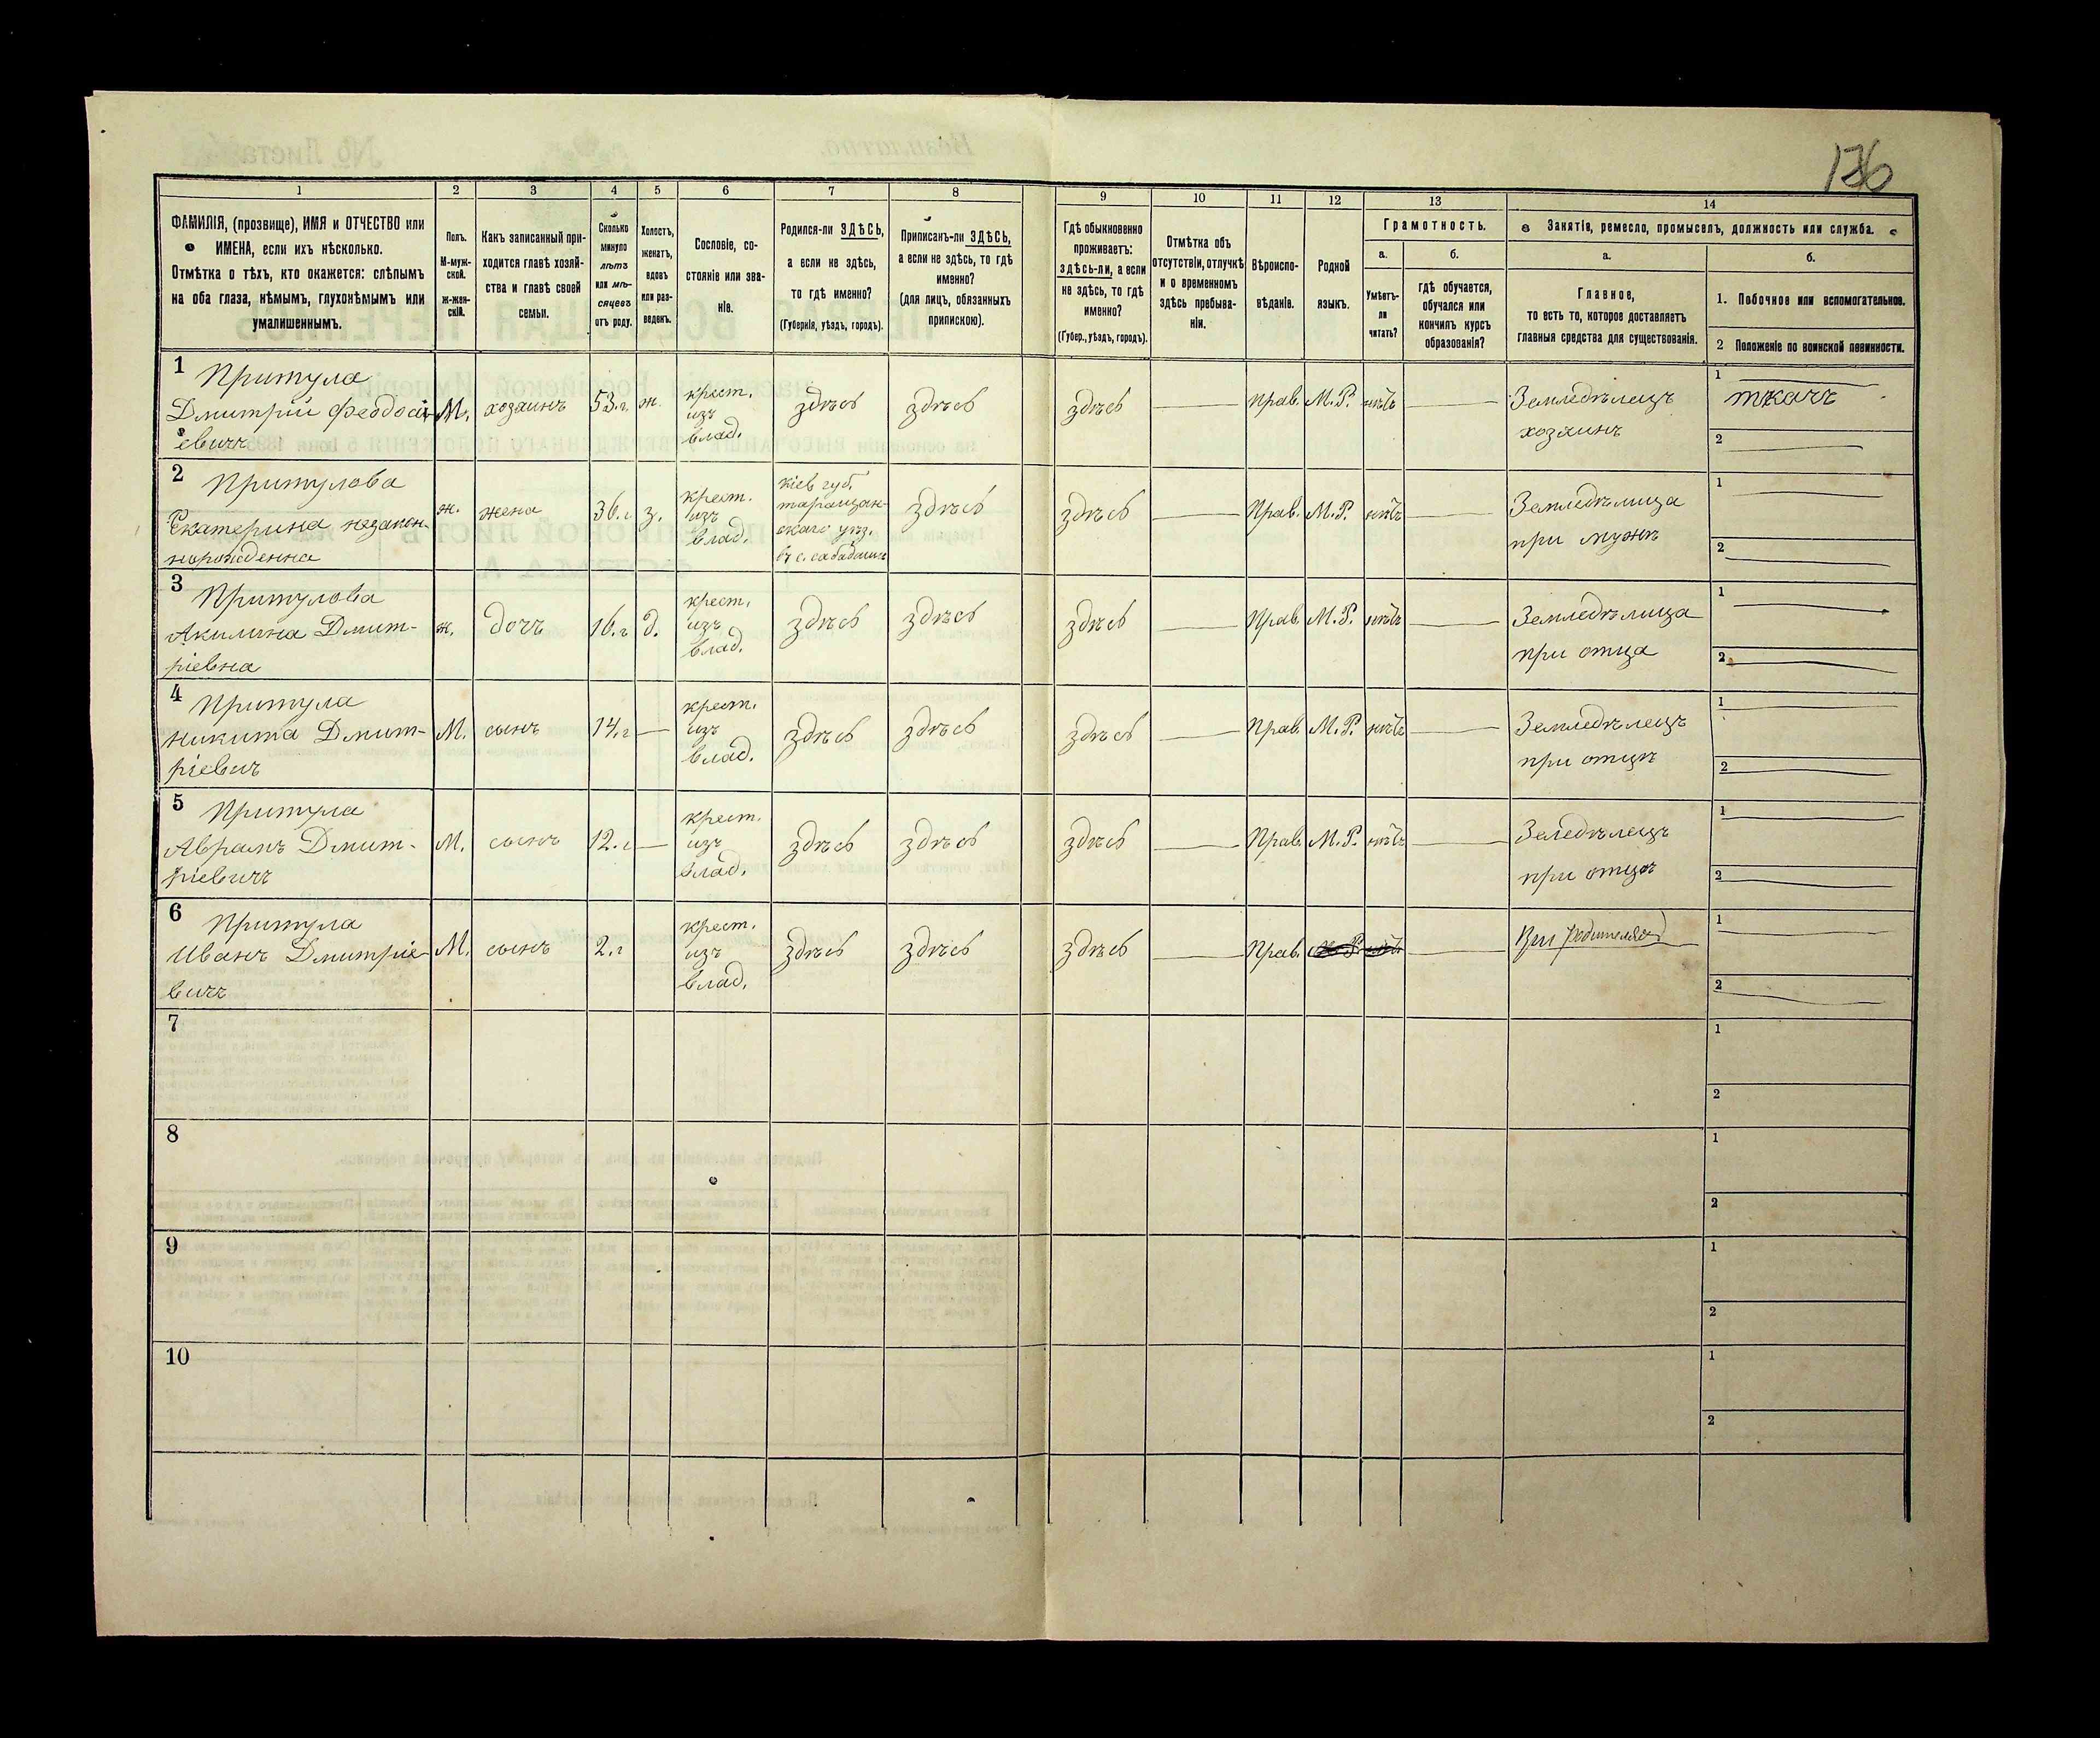 176
1
2
3
4
5
6
7
8
9
10
11
12
13
14
ФАМИЛІЯ, (прозвище), ИМЯ и ОТЧЕСТВО или
ИМЕНА, если ихъ нѣсколько.
Отмѣтка о тѣхъ, кто окажется: слѣпымъ
на оба глаза, нѣмымъ, глухонѣмымъ или
умалишеннымъ.
Полъ.
М-муж-
ской.
ж-жен-
скій.
Какъ записанный при-
ходится главѣ хозяй-
ства и главѣ своей
семьи.
Сколько
минуло
лѣтъ
или мѣ-
сяцевъ
отъ роду.
Холостъ,
женатъ,
вдовъ
или раз-
веденъ.
Сословіе, со-
стояніе или зва-
ніе.
Родился-ли ЗДѢСЬ,
а если не здѣсь,
то гдѣ именно?
(Губернія, уѣздъ, городъ).
Приписанъ-ли ЗДѢСЬ,
а если не здѣсь, то гдѣ
именно?
(для лицъ, обязанныхъ
припискою).
Гдѣ обыкновенно
проживаетъ:
здѣсь-ли, а если
не здѣсь, то гдѣ
именно?
(Губер., уѣздъ, городъ).
Отмѣтка объ
отсутствіи, отлучкѣ
и о временномъ
здѣсь пребыва-
ніи.
Вѣроиспо-
вѣданіе.
Родной
языкъ.
Грамотность.
а.
Умѣетъ-
ли
читать?
б.
гдѣ обучается,
обучался или
кончилъ курсъ
образованія?
Занятіе, ремесло, промыселъ, должность или служба.
а.
Главное,
то есть то, которое доставляетъ
главныя средства для существованія.
б.
1. Побочное или вспомогательное.
2 Положеніе по воинской повинности.
1 Притула
Дмитрій Феодосі-
евичъ
М.
хозаинъ
53.г.
ж.
крест.
изъ
влад.
здѣсь
здѣсь
здѣсь
Прав.
М.Р.
нѣтъ
Земледѣлецъ
хозаинъ
1
ткачъ
2
2 Притулова
Екатерина незакон-
норожденна
ж.
жена
36.г
з.
крест.
изъ
влад.
кіев губ.
таращан-
скаго уѣз.
здѣсь
здѣсь
Прав.
М.Р.
нѣтъ
Земледѣлица
при мужѣ
1
2
3 Притулова
Акилина Дмит-
ріевна
ж.
дочъ
16.г
д.
крест.
изъ
влад.
здѣсь
здѣсь
здѣсь
Прав.
М.Р.
нѣтъ
Земледѣлица
при отца
1
2
4 Притула
Никита Дмит-
ріевич
М.
сынъ
14.г
крест.
изъ
влад.
здѣсь
здѣсь
здѣсь
Прав.
М.Р.
нѣтъ
Земледѣлецъ
при отцѣ
1
2
5 Притула
Аврамъ Дмит-
ріевичъ
М.
сынъ
12.г
крест.
изъ
влад.
здѣсь
здѣсь
здѣсь
Прав.
М.Р.
нѣтъ
Заледѣлецъ
при отцѣ
1
2
6 Притула
Иванъ Дмитріе-
вичъ
М.
сынъ
2.г
крест.
изъ
влад.
здѣсь
здѣсь
здѣсь
Прав.
При родителяхъ
1
2
7
1
2
8
1
2
9
1
2
10
1
2